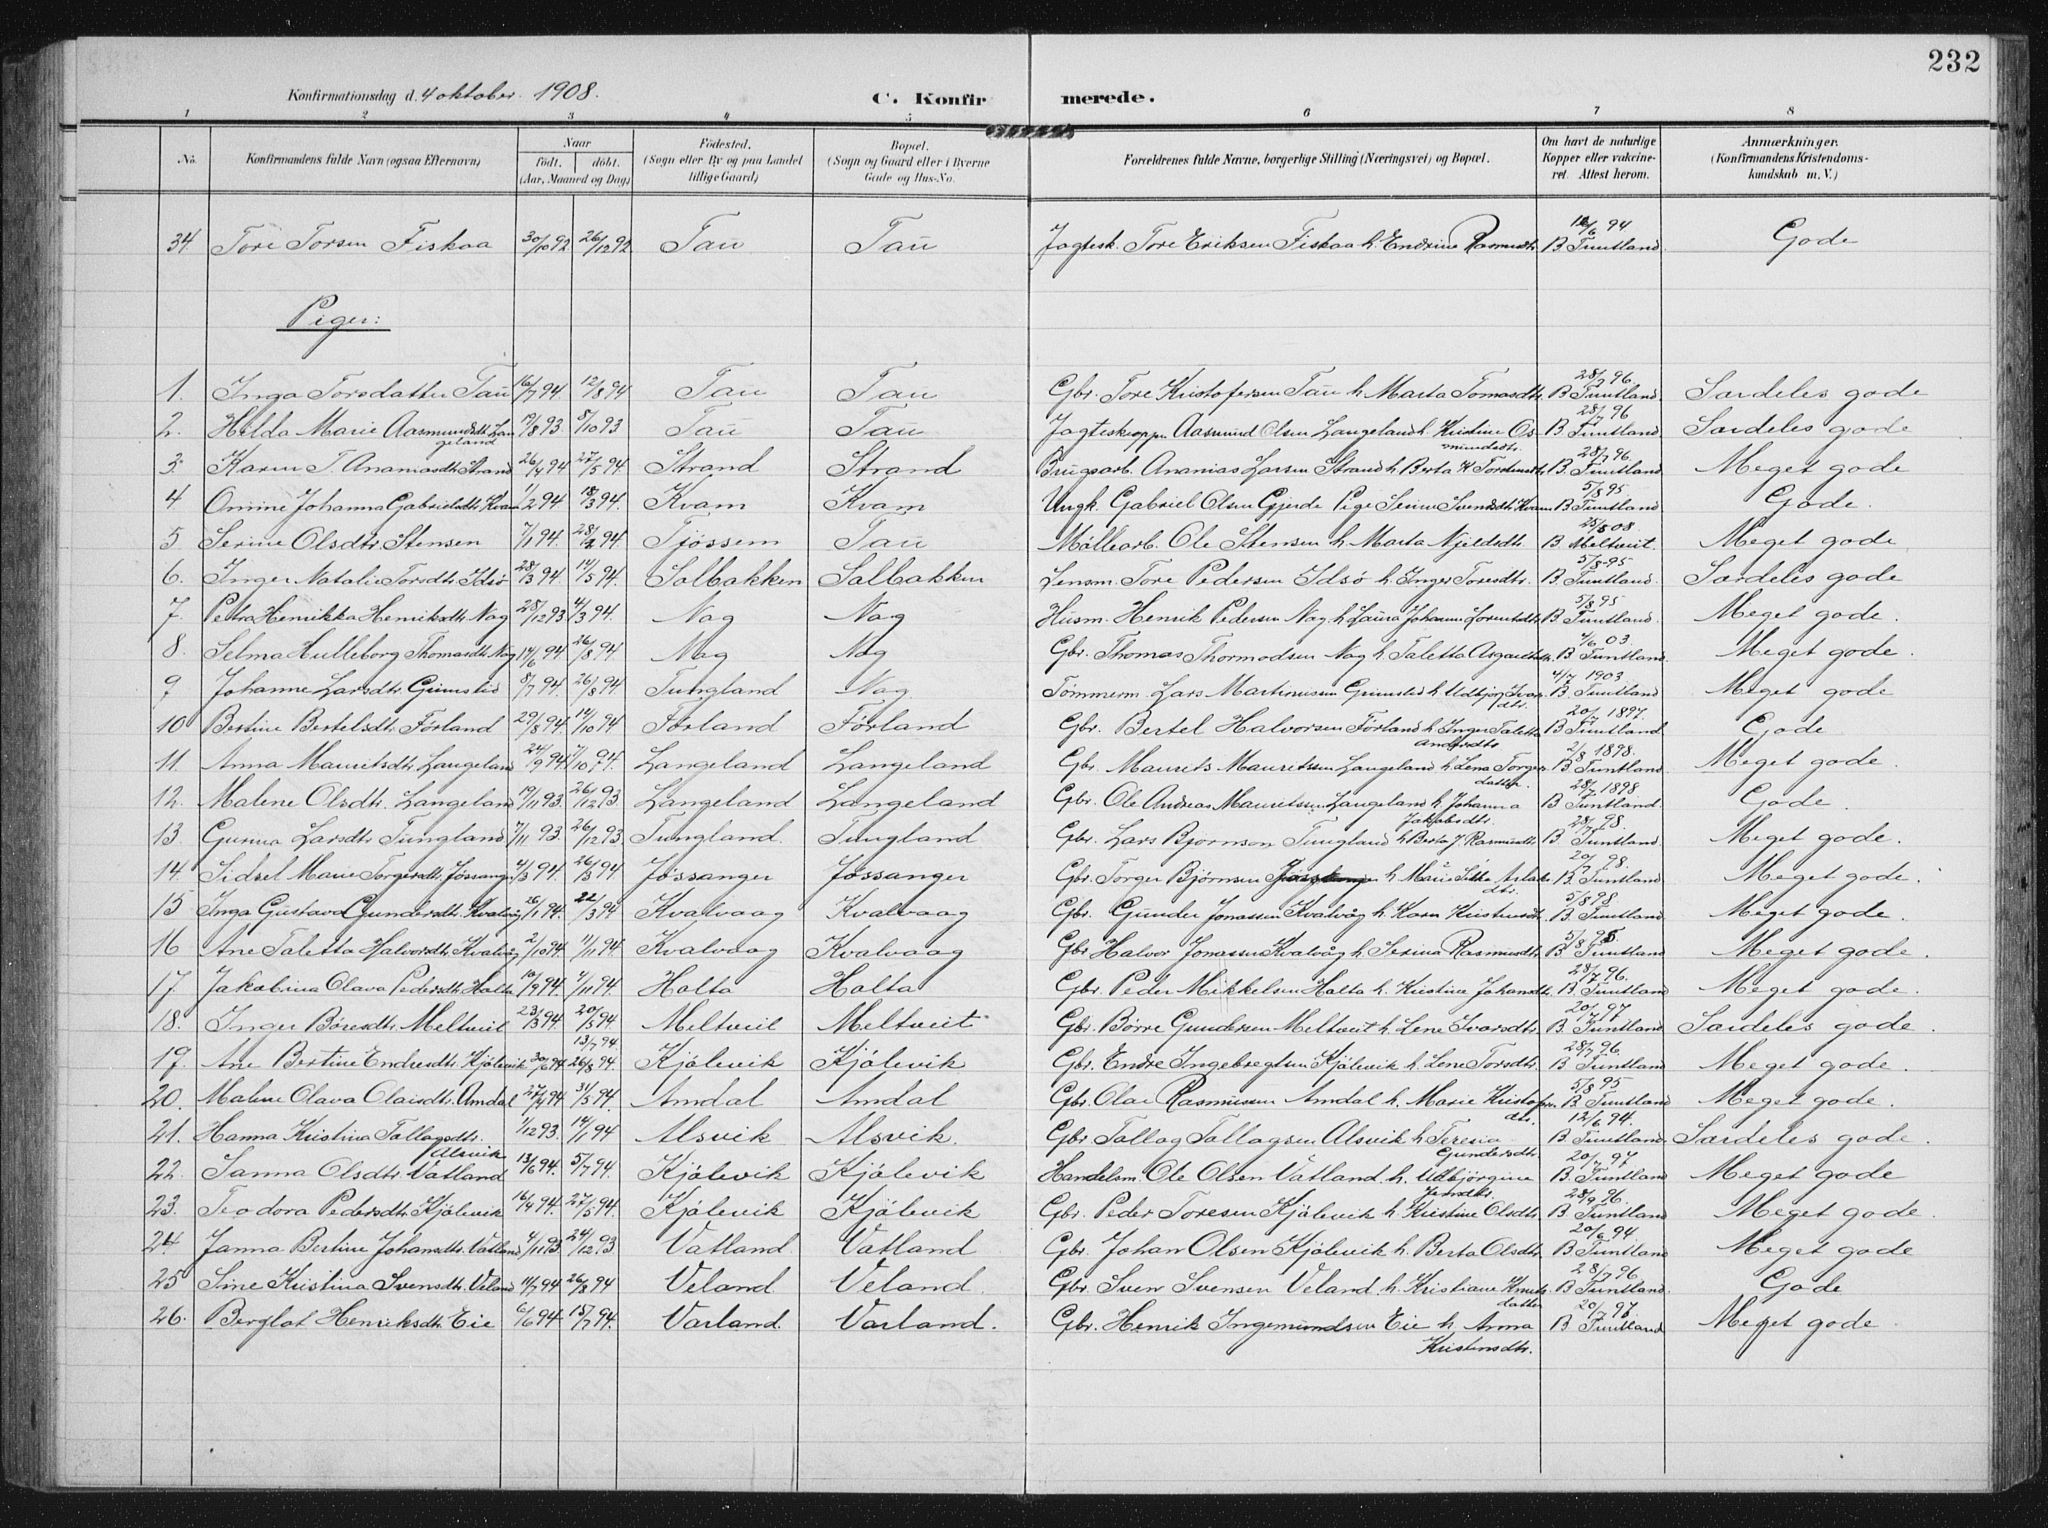 232
Konfirmationsdag d. 4 oktober 1908. C. Konfirmerede.
1 2 3 4 5 6 7 8
No. Konfirmandens fulde Navn (ogsaa Efternavn) Naar födt. döbt. (Aar, Maaned og Dag) Födested. (Sogn eller By og paa Landet tillige Gaard) Bopæl. (Sogn og Gaard eller i Byerne Gade og Hus-No. Forældrenes fulde Navne, borgerlige Stilling (Næringsvei) og Bopæl. Om havt de naturlige Kopper eller vakcineret. Attest herom. Anmærkninger. (Konfirmandens Kristendomskundskab m. V.)
34. Tore Torsen Fiskaa 30/10 92 26/12 92 Taū Taū Jagtesk. Tore Eriksen Fiskaa h. Endrine Rasmusdtr. 16/6 94 B. Tuntland. Gode
Piger:
1. Inga Torsdatter Taū 16/7 94 12/8 94 Taū Taū Gbr. Tore Kristofersen Taū h. Marta Tomasdtr. 28/7 96. B. Tuntland. Særdeles gode
2. Hilda Marie Aasmundsdtr. Langeland 19/8 93. 8/10 93 Taū Taū Jagteskipper Aasmund Olsen Langeland h. Kristine Osmundsdtr. 28/7 96 B. Tuntland. Særdeles gode
3. Karen T. Ananiasdtr. Strand 26/4 94 27/5 94 Strand Strand Brugsarb. Ananias Larsen Strand h. Berta K Torstensdtr. 28/7 96. B. Tuntland. Meget gode
4 Omine Johanna Gabrielsdtr. Kvam 1/2 94. 18/3 94. Kvam Kvam Ungk. Gabriel Olsen Gjerde Pige Serine Svendsdtr. Kvam 5/8 95 B Tuntland Gode.
5 Serine Olsdtr. Stensen 7/1 94. 28/2 94. Tjössem Taū Möllearb. Ole Stensen h. Marta Njeldsdtr. 28/5 08. B. Meltveit. Meget gode
6. Inger Natalie Torsdtr. Idsö 28/3 94 14/5 94. Solbakken Solbakken Lensm. Tore Pedersen Idsö h. Inger Toresdtr. 5/8-95 B. Tuntland. Særdeles gode
7. Petra Henrikka Henriksdtr. Nag 28/12 93 4/3 94. Nag Nag Husm. Henrik Pedersen Nag h. Laura Johanna Lorentsdtr. 5/8 95 B. Tuntland. Meget gode.
8. Selma Hulleborg Thomasdtr. Nag 14/6 94 26/8 94 Nag Nag Gbr. Thomas Thormodsen Nag h. Taletta Asgautsdtr. 4/6 03. B Tuntland. Meget gode.
9 Johanne Larsdtr. Grimstid 8/7 94. 26/8 94. Tungland Nag Tömmerm. Lars Martinusen Grimsted h Udbjor Ivarsdtr. 4/7 1903 B. Tuntland Meget gode
10 Bertine Bertelsdtr. Förland 29/8 94. 14/10 94 Förland Förland Gbr. Bertel Halvorsen Förland h Inger Taletta Andersdtr 20/7 1897. B Tuntland Gode
11. Anna Mauritsdtr. Langeland 24/9 94 7/10 94. Langeland Langeland Gbr. Maurits Mauretssen Langeland h Lena Torgersdatter. 2/8 1898. B. Tuntland. Meget gode.
12. Malene Olsdtr. Langeland 19/11 93. 26/12 93 Langeland Langeland Gbr. Ole Andreas Mauritsen Langeland h Johanna Jakobsdtr. 28/7 1898 B Tuntland. Gode.
13 Gurina Larsdtr. Tungland 7/11 93. 26/12 93 Tungland. Tungland Gbr. Lars Bjornson Tungland h Berta J. Rasmusdtr. 28/7 98. B. Tuntland. Meget gode.
14. Sidsel Marie Torgersdtr. Jössanger 4/3 94. 26/3 94 Jössanger Jössanger Gbr. Torger Björnsen Jössanger h Marie Aslaksdtr. 20/7 98. B. Tuntland. Meget gode.
15 Inga Gustava Gundersdtr. Kvalvåg 26/1 94. 22/3 94 Kvalvaag Kvalvaag Gbr. Gunder Jonassen Kvalvåg h. Karn Kristensdtr. 5/8 98. B. Tuntland. Meget gode.
16 Ane Taletta Halvorsdtr. Kvalvåg 2/10 94. 11/11 94. Kvalvaag Kvalvaag Gbr Halvor Jonassen Kvalvåg h. Serina Rasmusdtr. 5/8 95. B Tuntland Meget gode.
17 Jakobina Olava Pedersdtr. Holta 10/9 94. 4/11 94. Holta Holta Gbr. Peder Mikkelsen Holta h. Kristine Johansdtr. 28/7 96. B. Tuntland Meget gode.
18. Inger Böresdtr. Meltveit 23/3 94. 20/5 94 Meltveit Meltveit Gbr. Börre Gundersen Meltveit h. Lene Ivarsdtr. 20/7 97 B. Tuntland Særdeles gode.
19. Ane Bertine Endresdtr. Kjölevik 30/6 94 13/7 94 26/8 94. Kjölevik Kjölevik Gbr. Endre Ingebregtsen Kjölevik h. Lene Torsdtr. 28/7 96. B Tuntland Meget gode.
20. Malene Olava Olaisdtr. Amdal 27/4 94 31/5 94. Amdal Amdal Gbr. Olai Rasmussen Amdal h. Marie Kristofersdtr. 5/8 95 B. Tuntland Meget gode.
21. Hanna Kristina Tallagsdtr. Alsvik 1/12 93. 14/1 94 Alsvik Alsvik. Gbr Tallag Tallagsen Alsvik h Teresia Gundersdtr. 12/6 94. B Tuntland. Særdeles gode.
22. Sanna Olsdtr. Vatland 13/6 94. 5/7 94. Kjölevik Kjölevik Handelsm. Ole Olsen Vatland. h. Udbjörgine Jensdtr. 20/7 97 B Tuntland Meget gode
23. Teodora Pedersdtr. Kjölevik 16/4 94. 27/5 94. Kjölevik Kjölevik Gbr. Peder Toresen Kjölevik h. Kristine Olsdtr. 28/9 96. B Tuntland Meget gode.
24 Janna Bertine Johansdtr. Vatland 4/11 93. 24/12 93 Vatland. Vatland Gbr. Johan Olsen Kjölevik h. Berta Olsdtr. 20/6 94 B Tuntland Meget gode
25 Sine Kristina Svensdtr. Veland 11/7 94. 26/8 94 Veland. Veland. Gbr. Sven Svensen Veland h. Kristiane Knutsdatter 28/7 96. B Tuntland. Gode
26. Bergliot Henriksdtr. Eie 6/6 94. 15/7 94. Varland. Varland. Gbr. Henrik Ingemundsen Eie h Anna Kristensdtr. 20/7 97. B. Tuntland Meget gode.